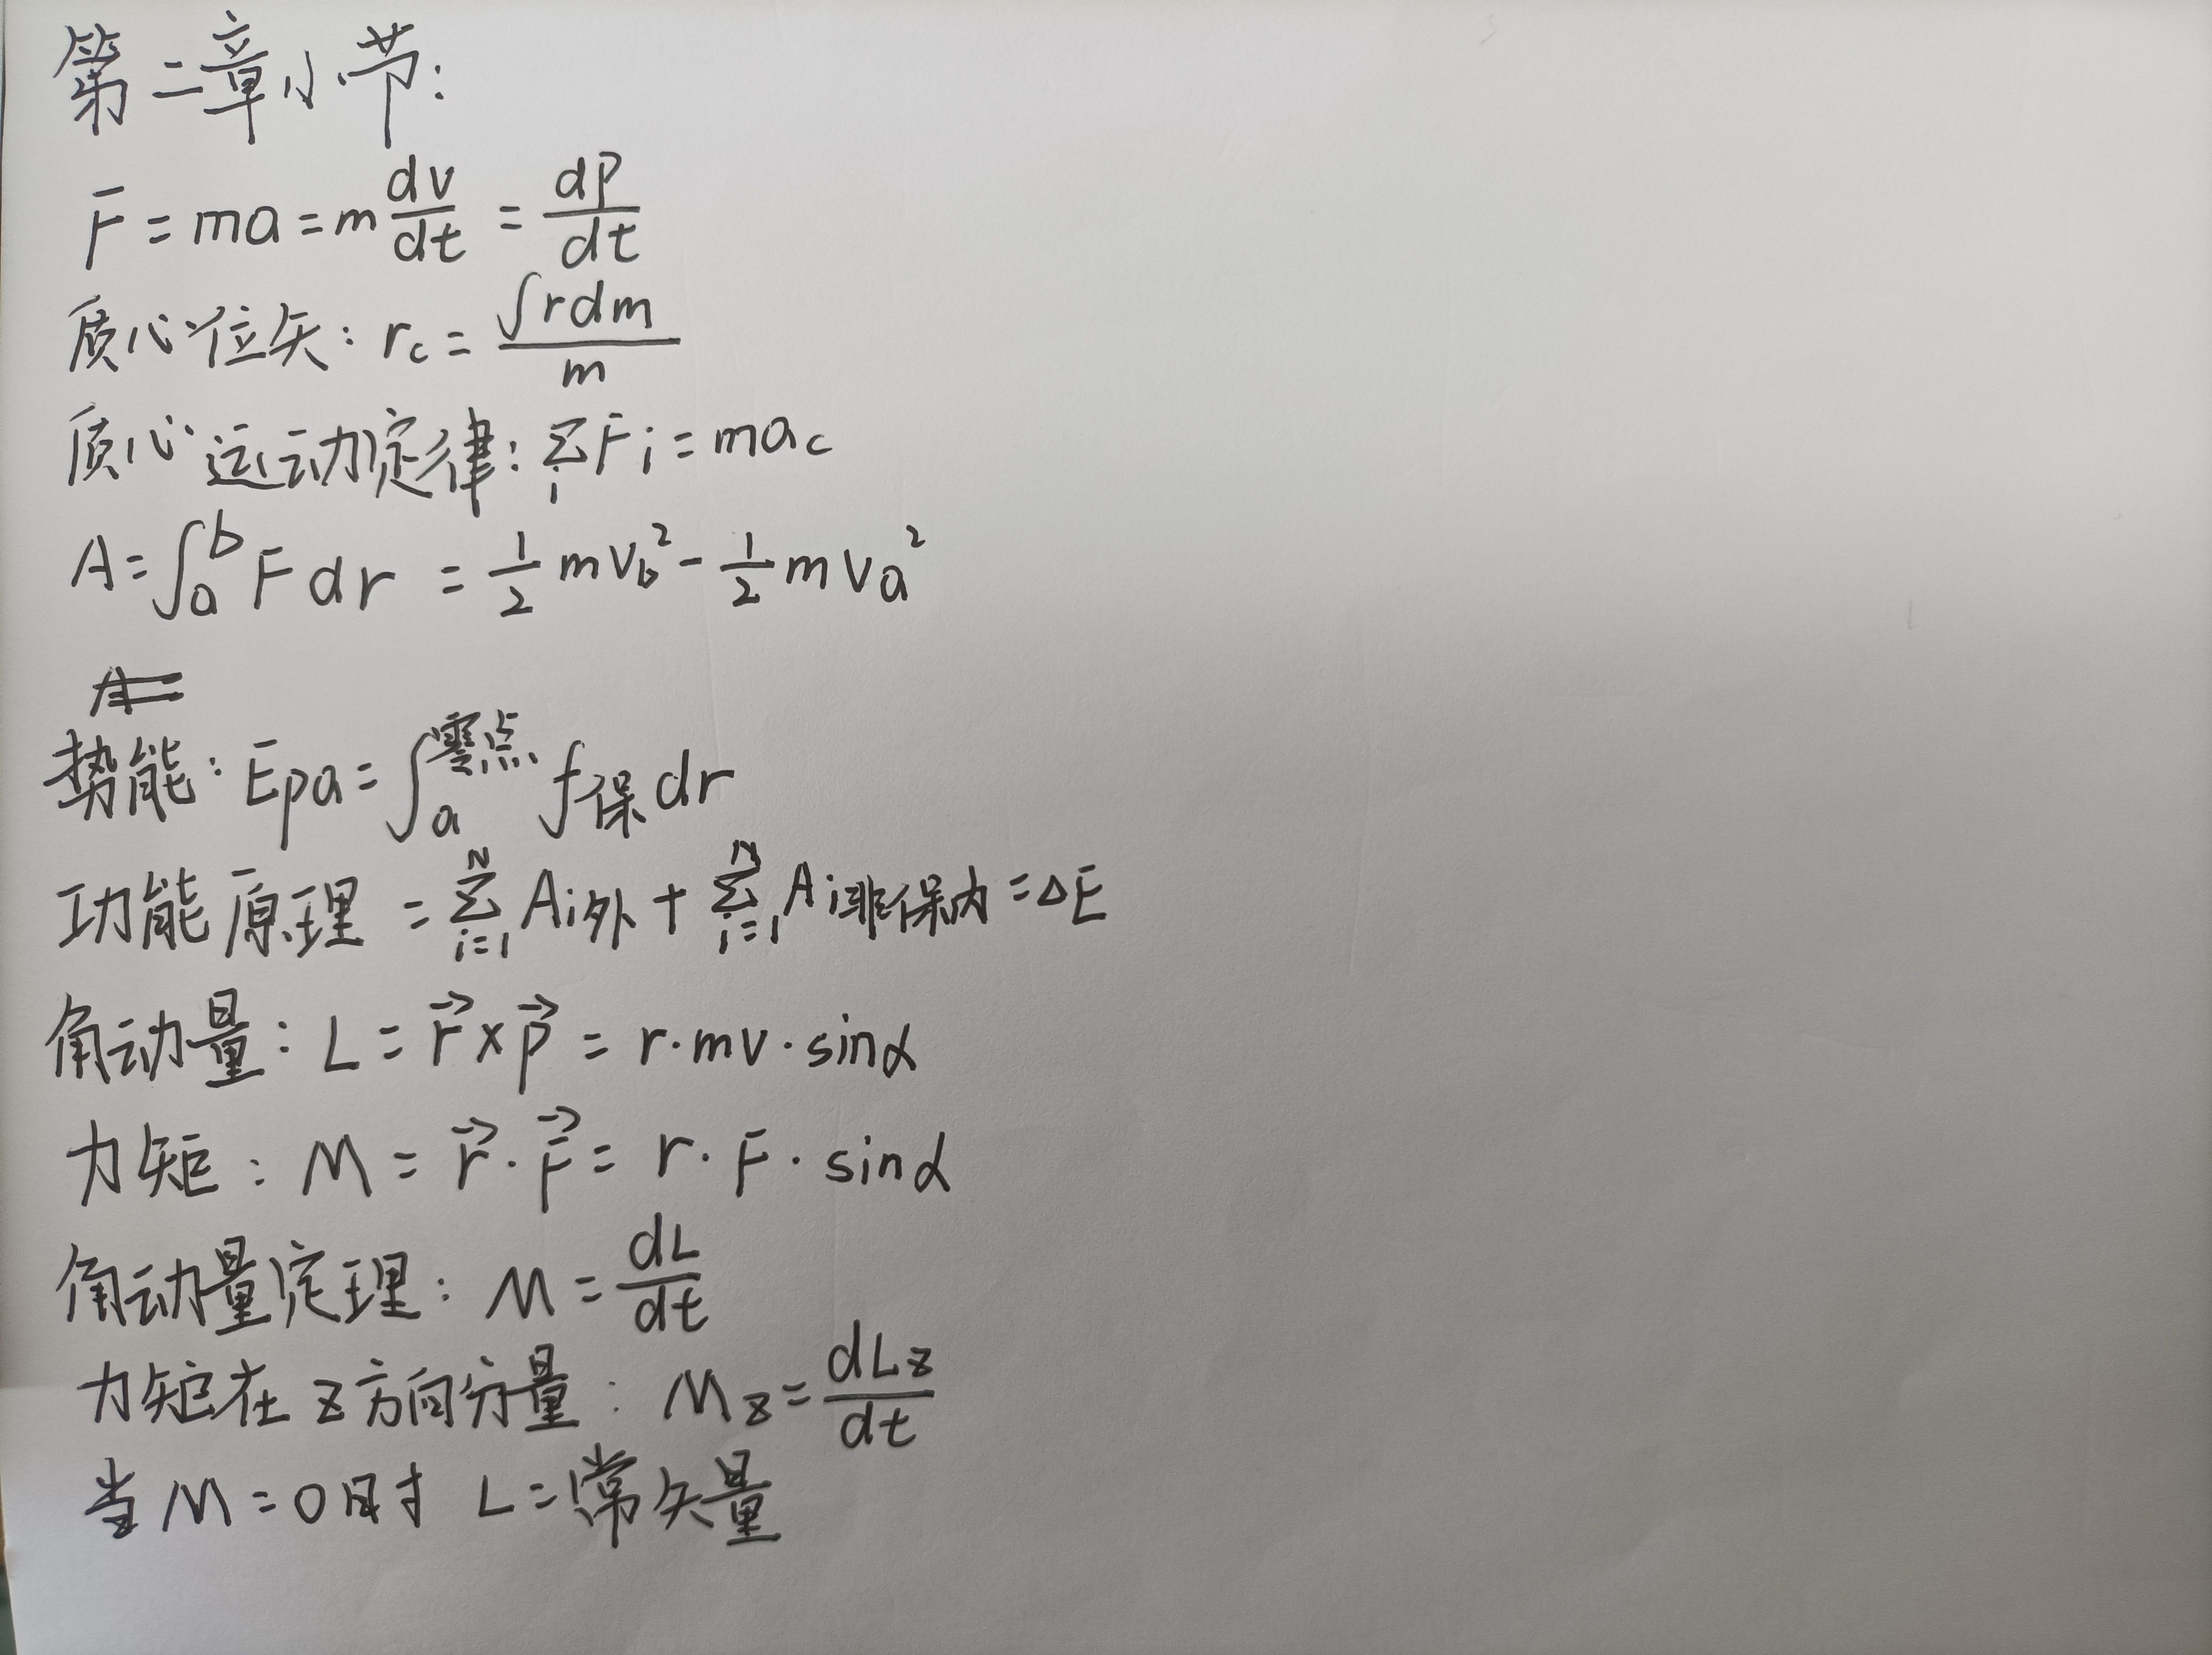 第二章小节:
F = ma = m dv/dt = dP/dt
质心位矢: rc = ∫rdm/m
质心运动定律: ΣiFi = mac
A = ∫ab F dr = 1/2 mvb² - 1/2 mva²
势能: Epa = ∫a零点 f保dr
功能原理 = Σi=1N Ai外 + Σi=1N Ai非保内 = ΔE
角动量: L = r⃗ × p⃗ = r·mv·sinα
力矩: M = r⃗·F⃗ = r·F·sinα
角动量定理: M = dL/dt
力矩在z方向分量: Mz = dLz/dt
当M=0时 L=常矢量